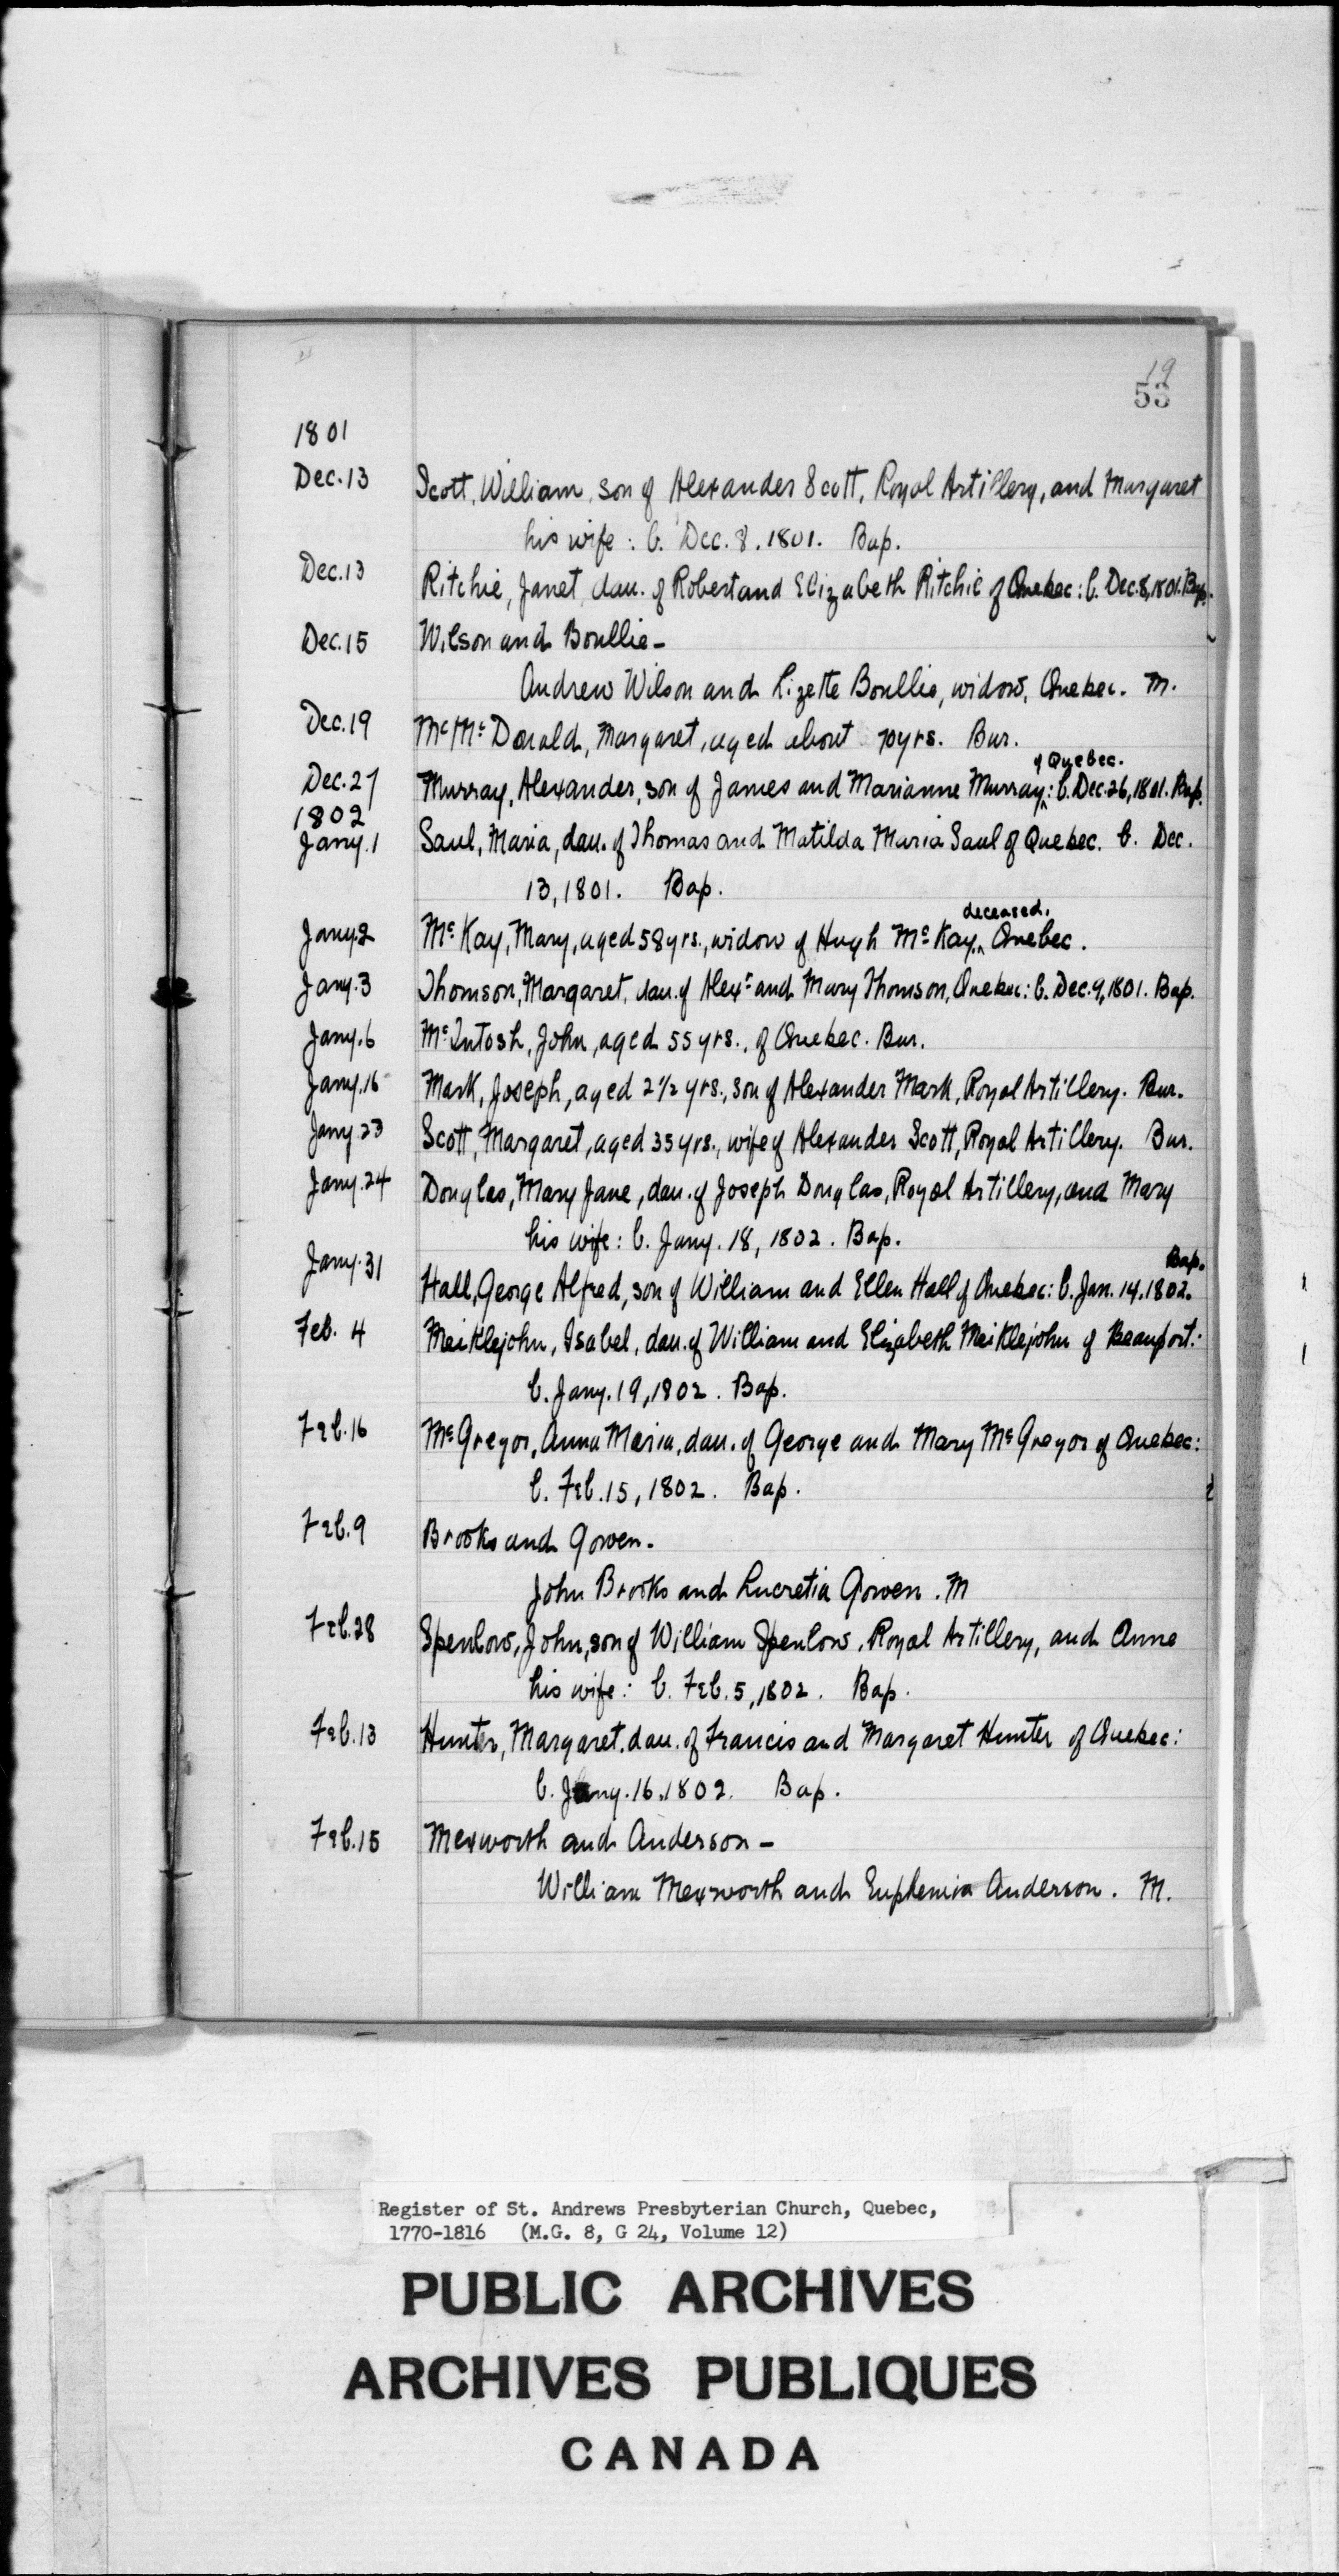 19
53
1801
Dec. 13 Scott, William, son of Alexander Scott, Royal Artillery, and Margaret
his wife: b. Dec. 8. 1801. Bap.
Dec. 13 Ritchie, Janet, dau. of Robert and Elizabeth Ritchie of Quebec: b. Dec. 8, 1801. Bap.
Dec. 15 Wilson and Boullie -
Andrew Wilson and Lizette Boullie, widow, Quebec. M.
Dec. 19 Mc Mc Donald, Margaret, aged about 70 yrs. Bur.
of Quebec.
Dec. 27 Murray, Alexander, son of James and Marianne Murray ^: b. Dec. 26, 1801. Bap.
1802
Jany. 1 Saul, Maria, dau. of Thomas and Matilda Maria Saul of Quebec. b. Dec.
13, 1801. Bap.
deceased.
Jany. 2 Mc Kay, Mary, aged 58 yrs., widow of Hugh Mc Kay ^ Quebec.
Jany. 3 Thomson, Margaret, dau. of Alexr and Mary Thomson, Quebec: b. Dec. 9, 1801. Bap.
Jany. 6 Mc Intosh, John, aged 55 yrs., of Quebec. Bur.
Jany. 16 Mark, Joseph, aged 2 1/2 yrs., son of Alexander Mark, Royal Artillery. Bur.
Jany. 23 Scott, Margaret, aged 35 yrs., wife of Alexander Scott, Royal Artillery. Bur.
Jany. 24 Douglas, Mary Jane, dau. of Joseph Douglas, Royal Artillery, and Mary
his wife: b. Jany. 18, 1802. Bap.
Bap.
Jany. 31 Hall, George Alfred, son of William and Ellen Hall of Quebec: b. Jan. 14. 1802.
Feb. 4 Meiklejohn, Isabel, dau. of William and Elizabeth Meiklejohn of Beauport:
b. Jany. 19, 1802. Bap.
Feb. 16 Mc Gregor, Anna Maria, dau. of George and Mary Mc Gregor of Quebec:
b. Feb. 15, 1802. Bap.
Feb. 9 Brooks and Gowen.
John Brooks and Lucretia Gowen. M
Feb. 28 Spenlow, John, son of William Spenlow, Royal Artillery, and Anne
his wife: b. Feb. 5, 1802. Bap.
Feb. 13 Hunter, Margaret. dau. of Francis and Margaret Hunter of Quebec:
b. Jany. 16. 1802. Bap.
Feb. 15 Mexworth and Anderson -
William Mexworth and Euphemia Anderson. M.
Register of St. Andrews Presbyterian Church, Quebec,
1770-1816 (M.G. 8, G 24, Volume 12)
PUBLIC ARCHIVES
ARCHIVES PUBLIQUES
CANADA